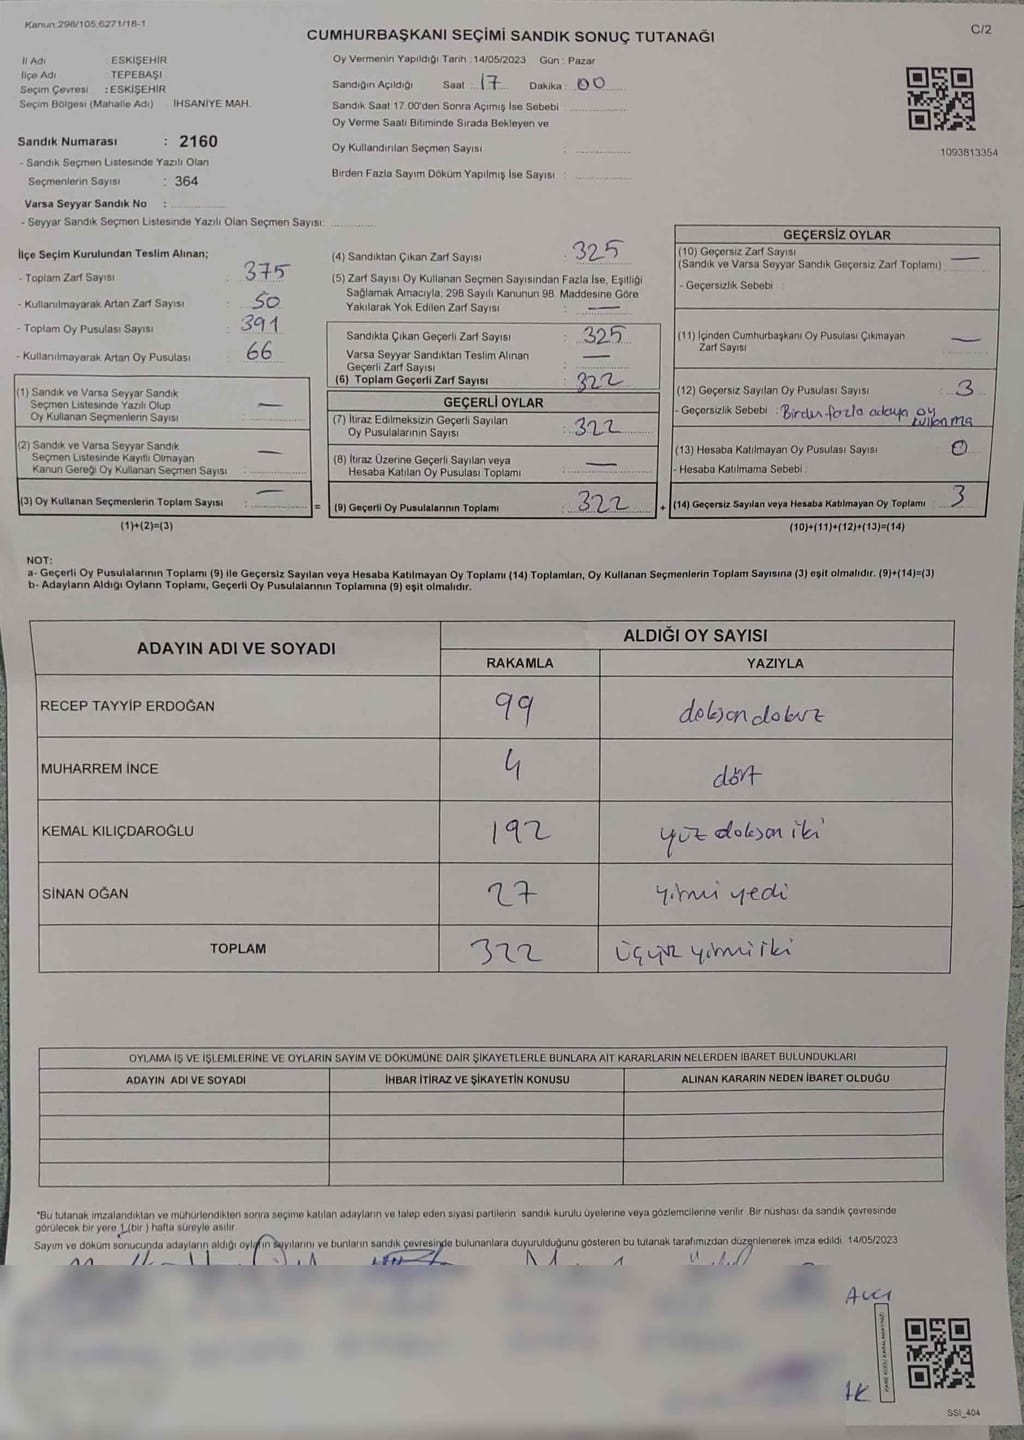 Kanun:298/105,6271/16-1
C/2
CUMHURBAŞKANI SEÇİMİ SANDIK SONUÇ TUTANAĞI
İl Adı : ESKİŞEHİR
İlçe Adı : TEPEBAŞI
Seçim Çevresi : ESKİŞEHİR
Seçim Bölgesi (Mahalle Adı) İHSANİYE MAH.
Sandık Numarası : 2160
- Sandık Seçmen Listesinde Yazılı Olan
Seçmenlerin Sayısı : 364
Varsa Seyyar Sandık No :
- Seyyar Sandık Seçmen Listesinde Yazılı Olan Seçmen Sayısı:
Oy Vermenin Yapıldığı Tarih :14/05/2023 Gün : Pazar
Sandığın Açıldığı Saat : 17 Dakika : 00
Sandık Saat 17.00'den Sonra Açımış İse Sebebi :
Oy Verme Saati Bitiminde Sırada Bekleyen ve
Oy Kullandırılan Seçmen Sayısı :
Birden Fazla Sayım Döküm Yapılmış İse Sayısı :
1093813354
İlçe Seçim Kurulundan Teslim Alınan;
- Toplam Zarf Sayısı : 375
- Kullanılmayarak Artan Zarf Sayısı : 50
- Toplam Oy Pusulası Sayısı : 391
- Kullanılmayarak Artan Oy Pusulası : 66
(1) Sandık ve Varsa Seyyar Sandık
Seçmen Listesinde Yazılı Olup
Oy Kullanan Seçmenlerin Sayısı : —
(2) Sandık ve Varsa Seyyar Sandık
Seçmen Listesinde Kayıtlı Olmayan
Kanun Gereği Oy Kullanan Seçmen Sayısı : —
(3) Oy Kullanan Seçmenlerin Toplam Sayısı : —
(1)+(2)=(3)
=
(4) Sandıktan Çıkan Zarf Sayısı : 325
(5) Zarf Sayısı Oy Kullanan Seçmen Sayısından Fazla İse, Eşitliği
Sağlamak Amacıyla, 298 Sayılı Kanunun 98. Maddesine Göre
Yakılarak Yok Edilen Zarf Sayısı : —
Sandıkta Çıkan Geçerli Zarf Sayısı : 325
Varsa Seyyar Sandıktan Teslim Alınan
Geçerli Zarf Sayısı : —
(6) Toplam Geçerli Zarf Sayısı : 322
GEÇERLİ OYLAR
(7) İtiraz Edilmeksizin Geçerli Sayılan
Oy Pusulalarının Sayısı : 322
(8) İtiraz Üzerine Geçerli Sayılan veya
Hesaba Katılan Oy Pusulası Toplamı : —
(9) Geçerli Oy Pusulalarının Toplamı : 322
+
GEÇERSİZ OYLAR
(10) Geçersiz Zarf Sayısı —
(Sandık ve Varsa Seyyar Sandık Geçersiz Zarf Toplamı) :
- Geçersizlik Sebebi :
(11) İçinden Cumhurbaşkanı Oy Pusulası Çıkmayan
Zarf Sayısı : —
(12) Geçersiz Sayılan Oy Pusulası Sayısı : 3
- Geçersizlik Sebebi : Birden fazla adaya oy
kullanma
(13) Hesaba Katılmayan Oy Pusulası Sayısı : 0
- Hesaba Katılmama Sebebi :
(14) Geçersiz Sayılan veya Hesaba Katılmayan Oy Toplamı : 3
(10)+(11)+(12)+(13)=(14)
NOT:
a- Geçerli Oy Pusulalarının Toplamı (9) ile Geçersiz Sayılan veya Hesaba Katılmayan Oy Toplamı (14) Toplamları, Oy Kullanan Seçmenlerin Toplam Sayısına (3) eşit olmalıdır. (9)+(14)=(3)
b- Adayların Aldığı Oyların Toplamı, Geçerli Oy Pusulalarının Toplamına (9) eşit olmalıdır.
ADAYIN ADI VE SOYADI
ALDIĞI OY SAYISI
RAKAMLA YAZIYLA
RECEP TAYYİP ERDOĞAN 99 doksan dokuz
MUHARREM İNCE 4 dört
KEMAL KILIÇDAROĞLU 192 yüz doksan iki
SİNAN OĞAN 27 yirmi yedi
TOPLAM 322 üçyüz yirmi iki
OYLAMA İŞ VE İŞLEMLERİNE VE OYLARIN SAYIM VE DÖKÜMÜNE DAİR ŞİKAYETLERLE BUNLARA AİT KARARLARIN NELERDEN İBARET BULUNDUKLARI
ADAYIN ADI VE SOYADI İHBAR İTİRAZ VE ŞİKAYETİN KONUSU ALINAN KARARIN NEDEN İBARET OLDUĞU
*Bu tutanak imzalandıktan ve mühürlendikten sonra seçime katılan adayların ve talep eden siyasi partilerin sandık kurulu üyelerine veya gözlemcilerine verilir. Bir nüshası da sandık çevresinde
görülecek bir yere 1 (bir ) hafta süreyle asılır.
Sayım ve döküm sonucunda adayların aldığı oyların sayılarını ve bunların sandık çevresinde bulunanlara duyurulduğunu gösteren bu tutanak tarafımızdan düzenlenerek imza edildi. 14/05/2023
SSI_404